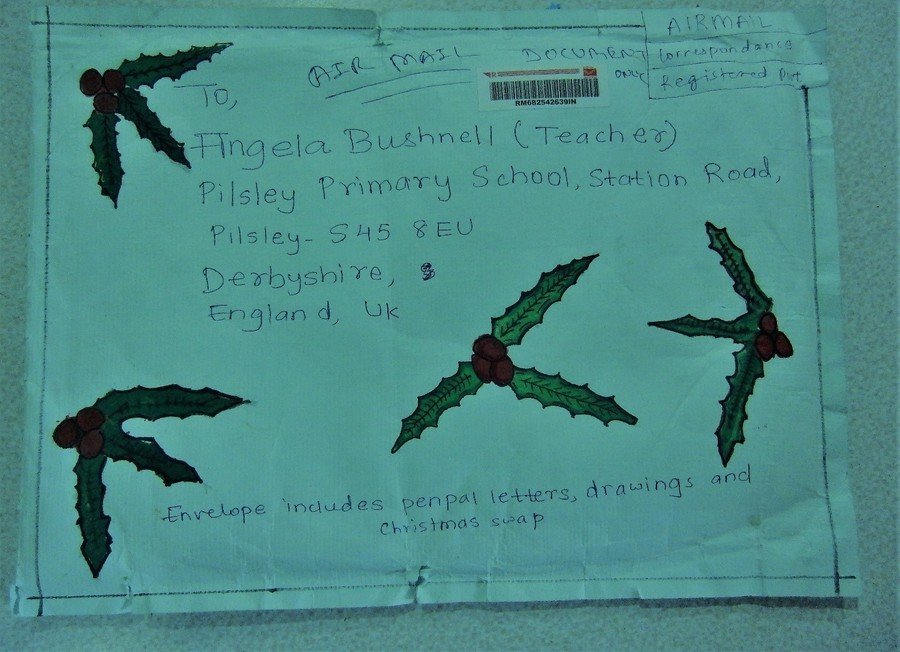 AIRMAIL
correspondance
Registered Post
AIR MAIL
DOCUMENT
ONLY
RM682542639IN
To,
Angela Bushnell (Teacher)
Pilsley Primary School, Station Road,
Pilsley- S45 8EU
Derbyshire,
England, Uk
Envelope includes penpal letters, drawings and
christmas swap